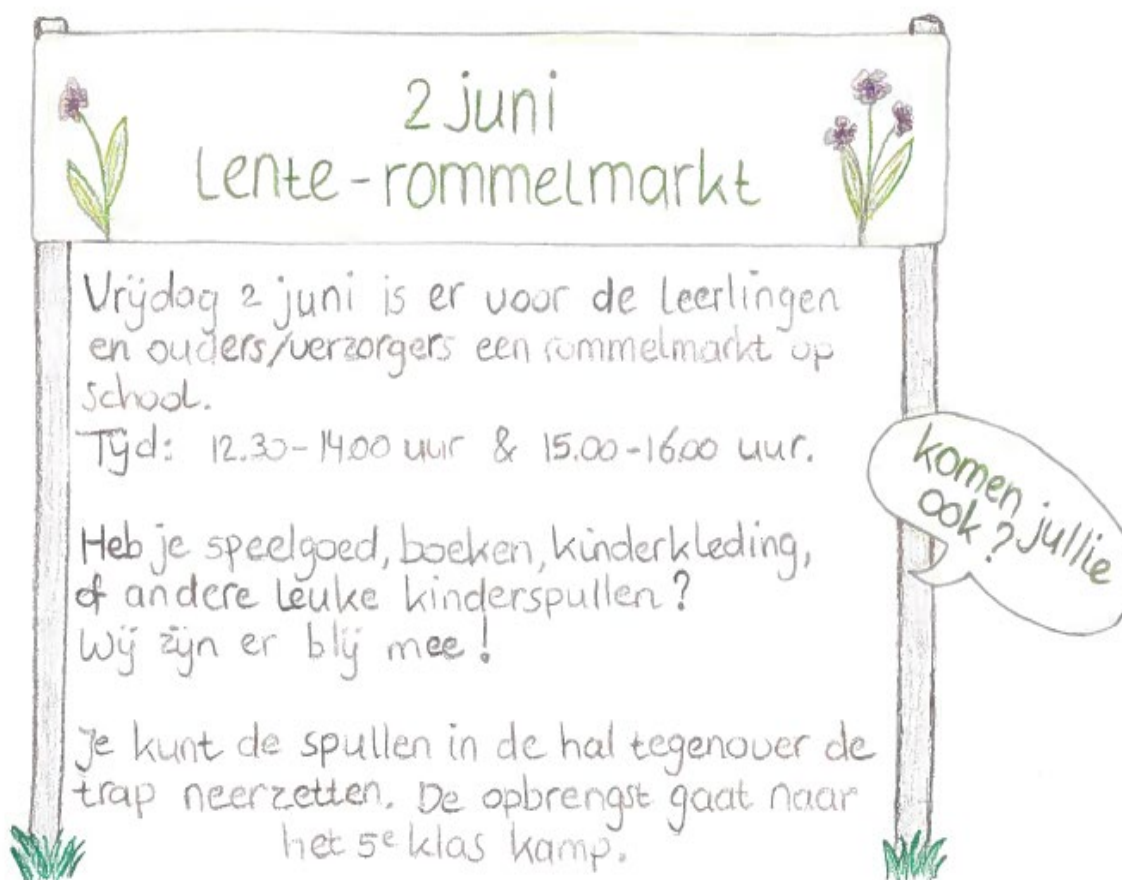 2 juni
Lente-rommelmarkt
Vrijdag 2 juni is er voor de leerlingen
en ouders/verzorgers een rommelmarkt op
school.
Tijd: 12.30-14.00 uur & 15.00-16.00 uur.
komen jullie
ook?
Heb je speelgoed, boeken, kinderkleding,
of andere leuke kinderspullen?
Wij zijn er blij mee!
Je kunt de spullen in de hal tegenover de
trap neerzetten. De opbrengst gaat naar
het 5e klas kamp.